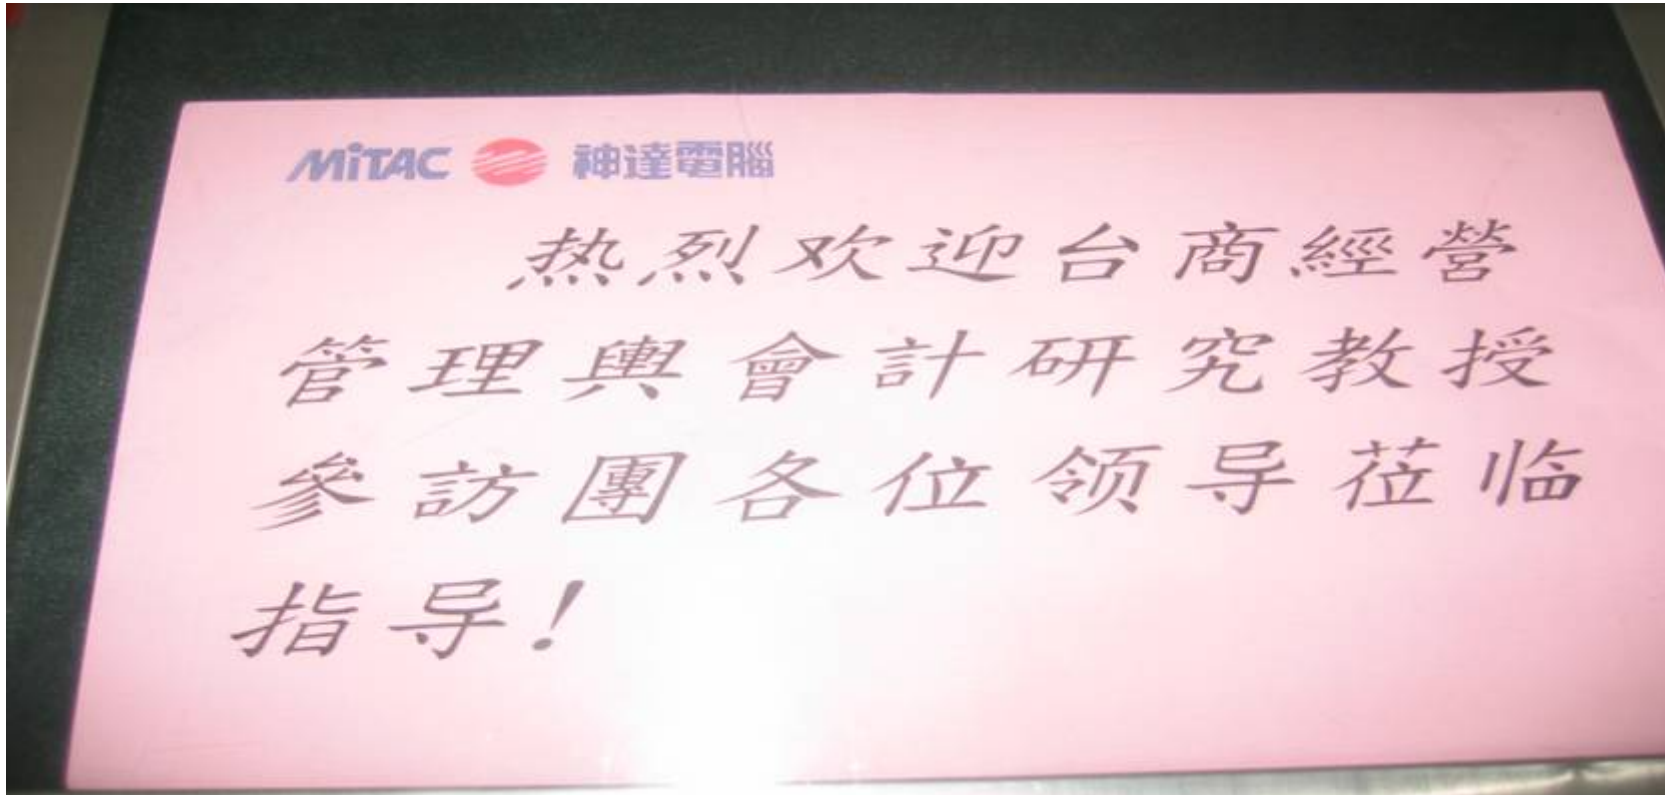 MiTAC 神達電腦
热烈欢迎台商經營
管理與會計研究教授
參訪團各位领导莅临
指导!